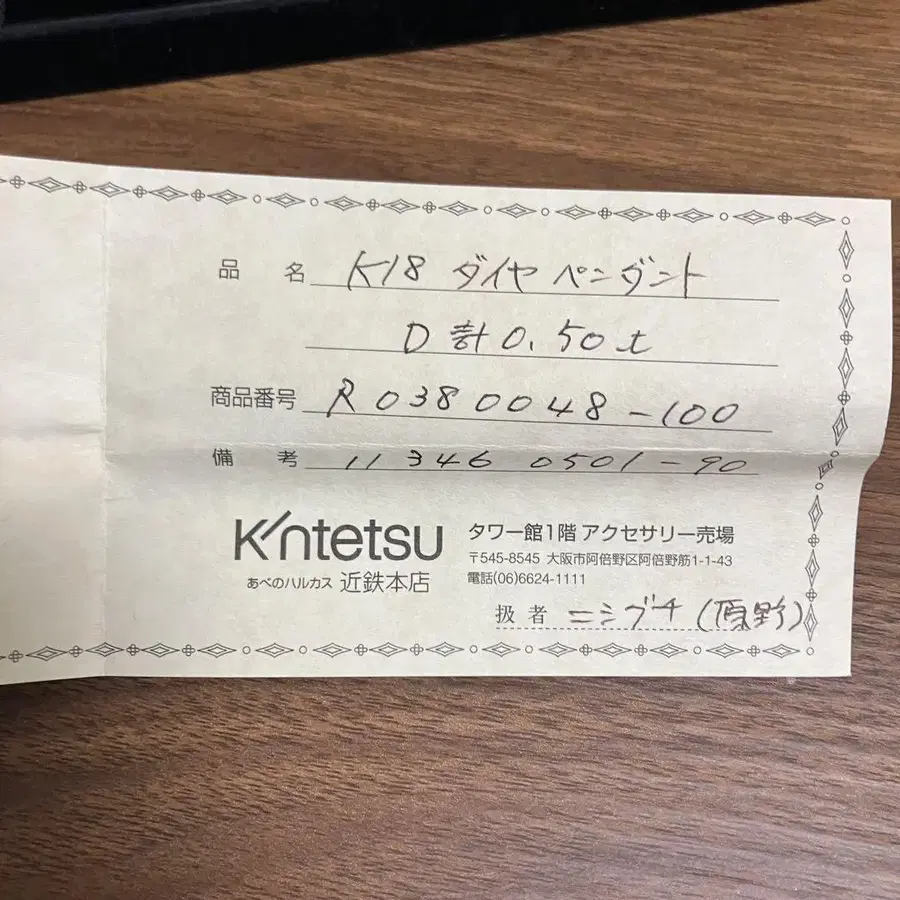 品名 K18 ダイヤ ペンダント
D 計 0.50 ct
商品番号 R0380048-100
備考 11346 0501-90
Kintetsu
あべのハルカス 近鉄本店
タワー館1階 アクセサリー売場
〒545-8545 大阪市阿倍野区阿倍野筋1-1-43
電話(06)6624-1111
扱者 ニシブチ (原野)